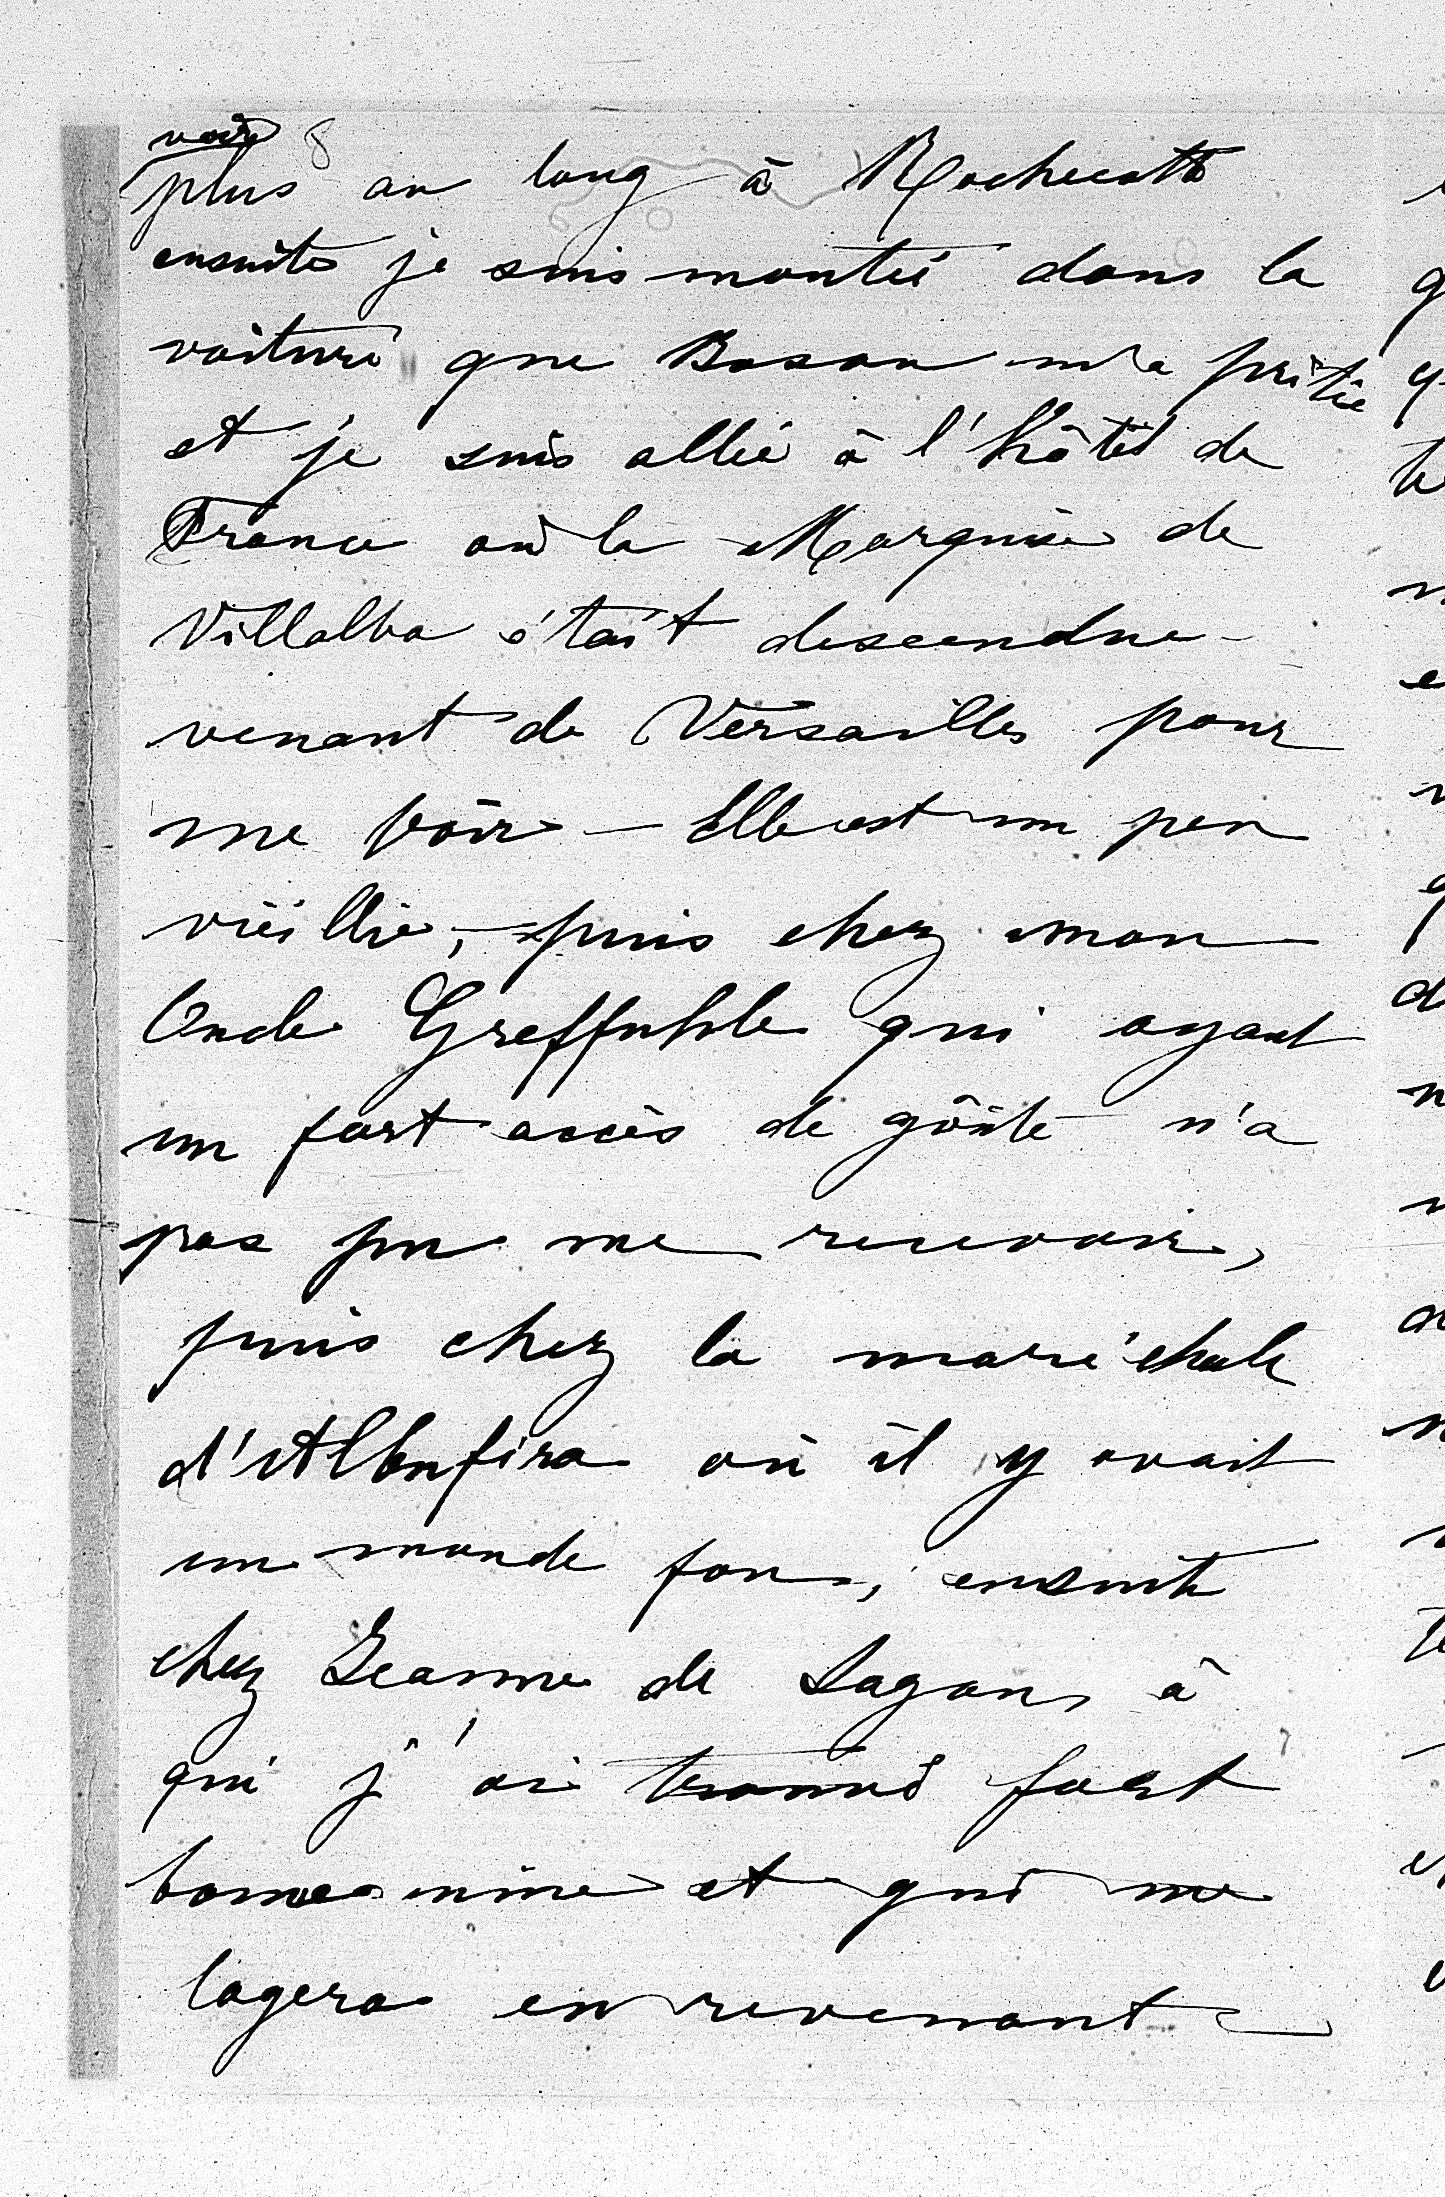 voir 8
plus au long à Rochecotte
ensuite je suis montée dans la
voiture que Boson m'a prêtée
et je suis allée à l'hôtel de
France où la Marquise de
Villalba était descendue
venant de Versailles pour
me voir — Elle est un peu
vieillie, — puis chez mon
Oncle Greffuhle qui ayant
un fort accès de goûte n'a
pas pu me recevoir,
puis chez la maréchale
d'Albufera où il y avait
un monde fou, ensuite
chez Jeanne de Sagan, à
qui j'ai trouvé fort
bonne mine et qui me
logera en revenant